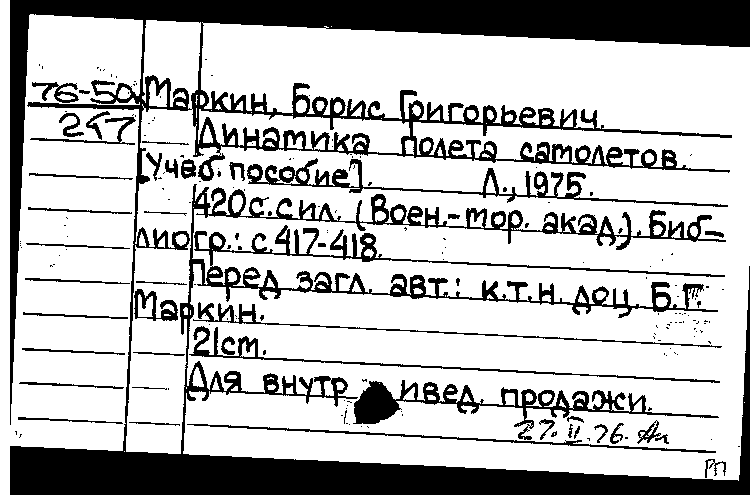 76-50 Маркин, Борис Григорьевич.
Динамика полета самолетов.
[Учеб. пособие]. Л., 1975.
420с. с ил. (Воен.-мор. акад.). Биб-
лиогр.: с. 417-418.
Перед загл. авт.: к.т.н. доц. Б.Г.
Маркин.
21cm.
Для внутр ивед. продажи.
27. II. 76.
РП